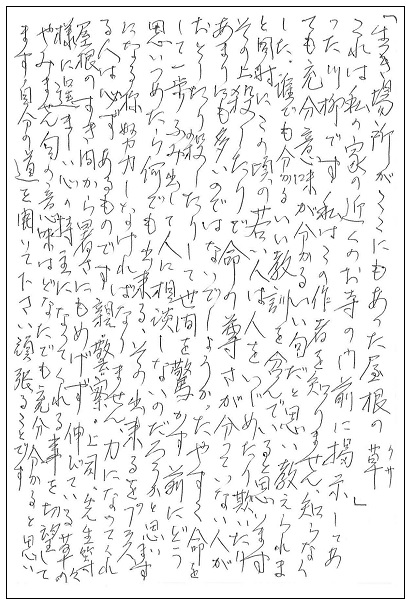 「生き場所がここにもあった屋根の草」
クサ
これは私の家の近くのお寺の門前に掲示してあ
った川柳です。私はこの作者を知りません。知らなく
ても充分意味が分るいい句だと思い教えられま
した。誰でも分るいい教訓を含んでいると思います
と同時にこの頃の若い人は人をいじめたり欺いたり
その上殺したりで命の尊さが分っていない人が
あまりにも多いのではないでしょうか。たやすく命を
おとしたり殺したりして世間を驚かす前にどう
して一歩ふみ出して人に相談しないのだろうかと思い
思いつめたら何でも出来る。その出来るをプラス
になる様努力しなければなりません。力になってくれ
る人は必ずあるものです。親、警察。上司、先生等々
屋根のすき間から暑さにもめげず伸びている草の
様に逞しい心の持主になってくれる事を切望して
やみません。句の意味はどなたでも充分分かると思い
ます。自分の道を開いて下さい。頑張ることです